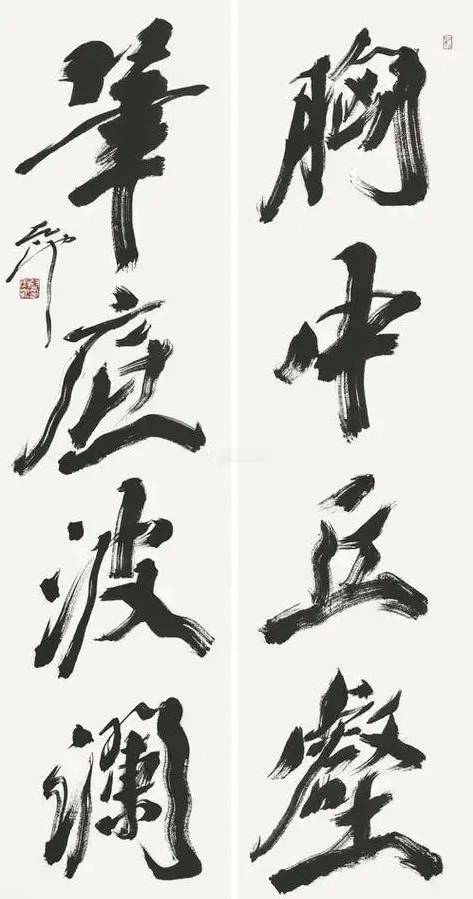 胸中丘壑
筆底波瀾